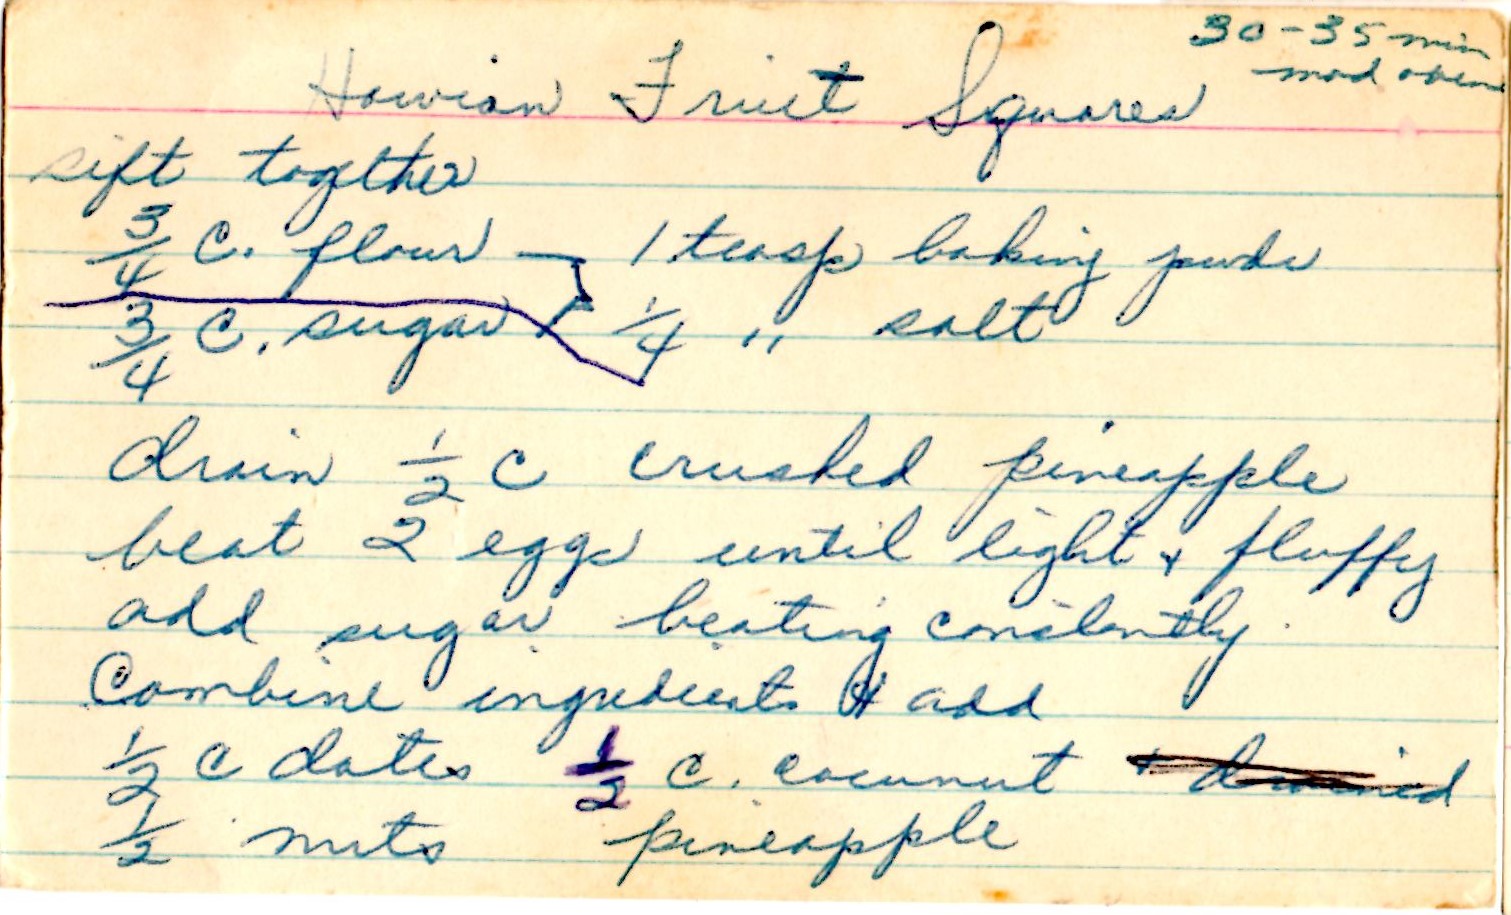 30-35 min
mod oven
Howian Fruit Squares
sift together
3/4 c. flour — 1 teasp baking pwdr
3/4 c. sugar 1/4 " salt
drain 1/2 c crushed pineapple
beat 2 eggs until light & fluffy
add sugar beating constantly.
Combine ingredients & add
1/2 c dates 1/2 c. cocunut + drained
1/2 nuts pineapple